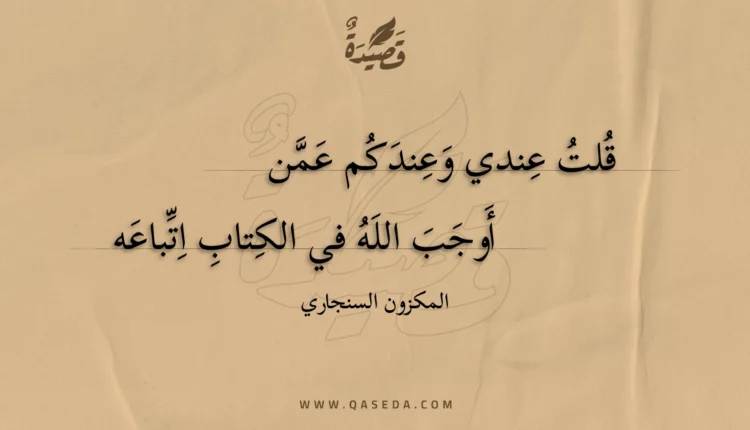 قَصِيْدَةٌ
قُلتُ عِندي وَعِندَكُم عَمَّن
أَوجَبَ اللَهُ في الكِتابِ اِتِّباعَه
المكزون السنجاري
WWW.QASEDA.COM